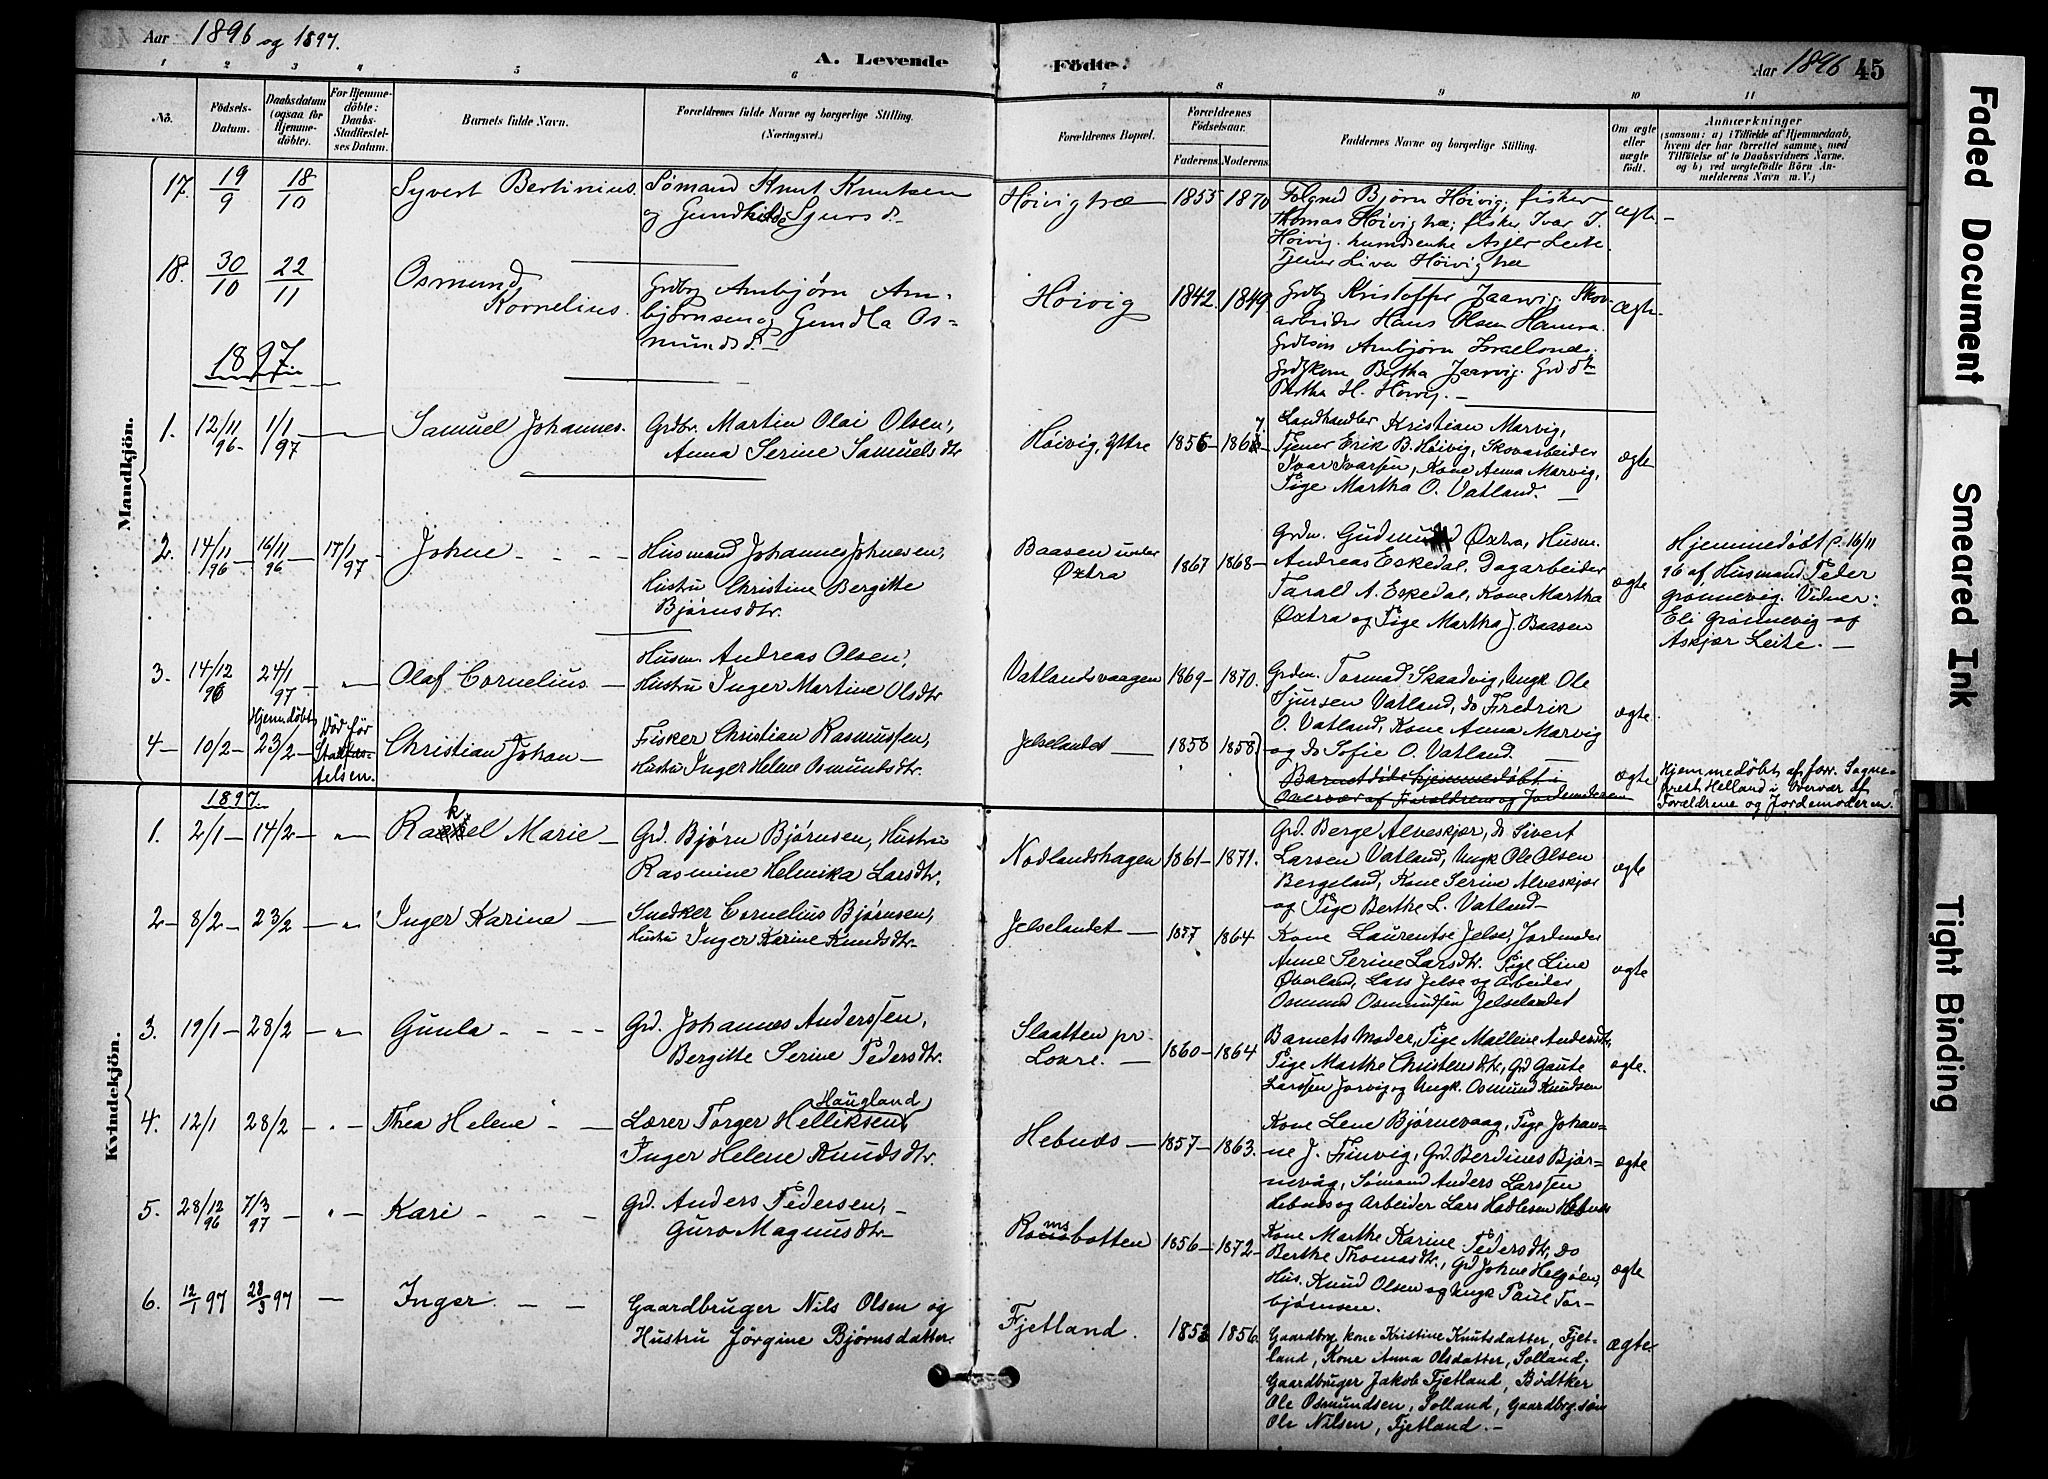 Aar 1896 og 1897.
A. Levende
Fødte.
Aar 1896 45
1 2 3 4 5 6 7 8 9 10 11
No.
Fødsels-
Datum.
Daabsdatum
(ogsaa for
Hjemme-
døbte).
For Hjemme-
døbte:
Daabs-
Stadfæstel-
ses Datum.
Barnets fulde Navn.
Forældrenes fulde Navne og borgerlige Stilling.
(Næringsvei.)
Forældrenes Bopæl.
Forældrenes
Fødselsaar.
Faderens. Moderens.
Faddernes Navne og borgerlige Stilling.
Om ægte
eller
uægte
født.
Anmærkninger
(saasom: a) i Tilfælde af Hjemmedaab,
hvem der har forrettet samme, med
Tilføielse af to Daabsvidners Navne,
og b) ved uægtefødte Børn An-
melderens Navn m. V.)
Mandkjøn.
17. 19/9 18/10 Syvert Bertinius. Sømand Knut Knutsen
og Gundhilde Sjurs d.
Høivig træ 1855 1870
Bjørn Høivig; fisker
Thomas Høivig træ; fisker Ivar I.
Høivig. Asjer Leite.
Tjener Liva Høivig træ
ægte
18. 30/10 22/11 Osmund
Kornelius.
Grdbr Arnbjørn Arn-
bjørnsen og Gundla Os-
munds d.
Høivig 1842. 1849.
Grdbr Kristoffer Jaarvig. Skov-
arbeider Hans Olsen Hamra.
Grdsøn Arnbjørn
Bertha Jaarvig. Grd dtr
Bertha H. Høivig.
Ægte
1897
1. 12/11 96 1/1 97 Samuel Johannes. Grdbr. Martin Olai Olsen,
Anna Serine Samuelsdtr
Høivig, Ytre 1856 1867
Landhandler Kristian Marvig,
Tjener Erik B. Høivig, Skovarbeider
Ivar Ivarsen, Kone Anna Marvig,
Pige Martha O. Vatland.
ægte
2. 14/11 96 16/11 96 17/1 97 Johne Husmand Johannes Johnesen,
Hustru Christine Bergitte
Bjørnsdtr.
Baasen under
Øxtra
1867 1868
Grdm. Gudmund Øxtra, Husm.
Andreas Eskedal, Dagarbeider
Tarald A. Eskedal, Kone Martha
Øxtra og Pige Martha J. Baasen
ægte
Hjemmedøbt p. 16/11
96 af Husmand Peder
Grønnevig. Vidner:
Eli Grønnevig og
Askjær Leite.
3. 14/12 96 24/1 97 " Olaf Cornelius Husm. Andreas Olsen,
Hustru Inger Martine Olsdtr
Vatlandsvaagen 1869 1870.
Grdm. Tormod Skaadvig, Ungk Ole
Sjursen Vatland, do Fredrik
O. Vatland, Kone Anna Marvig
og do Sofie O. Vatland.
ægte
4 10/2 Hjemdøbt 23/2 Død før
Stadfæs-
telsen.
Christian Johan Fisker Christian Rasmussen,
Hustru Inger Helene Osmundsdtr.
Jelselandet 1858 1858
Barnet døde hjemmedøbt i
Overvær af Forældrene og Jordemoderen
ægte
Hjemmedøbt af forr. Sogne-
prest Helland i Overvær af
Forældrene og Jordemoderen.
Kvindekjøn.
1897.
1. 2/1 14/2 " Rakel Marie Grd. Bjørn Bjørnsen, Hustru
Rasmine Helmika Larsdtr.
Nodlandshagen 1861 1871.
Grd. Berge Alveskjær, do Sivert
Larsen Vatland, Ungk Ole Olsen
Bergeland, Kone Serine Alveskjær
og Pige Berthe L. Vatland
ægte
2 8/2 23/2 " Inger Karine Snedker Cornelius Bjørnsen,
Hustru Inger Karine Knudsdtr.
Jelselandet 1857 1864
Kone Laurentse Jelse, Jordmoder
Anne Serine Larsdtr. Pige Line
Øverland, Lars Jelse og Arbeider
Osmund Osmundsen Jelselandet
ægte
3. 19/1 28/2 " Gunla Grd. Johannes Anderssen,
Bergitte Serine Pedersdtr.
Slaatten pr.
Lovre.
1860 1864
Barnets Moder, Pige Mallene Andersdtr,
Pige Marthe Christensdtr, Grd Gaute
Larssen Jorvig og Ungk. Osmund Knudsen
ægte.
4. 12/1 28/2 " Thea Helene Lærer Torger Helliksen Haugland
Inger Helene Knudsdtr.
Hebnes 1857 1863.
Kone Lene Bjørnevaag, Pige Johan-
ne J. Finvig, Grd. Berdines Bjør-
nevåg, Sømand Anders Larssen
Hebnes og Arbeider Lars Hadlesen Hebnes
ægte
5. 28/12 96 7/3 97 " Kari Grd. Anders Pedersen,
Guro Magnusdtr
Ramsbotten 1856 1872
Kone Marthe Karine Pedersdtr, do
Berthe Thomasdtr., Grd Johne Helgøen,
Hus. Knud Olsen og Ungk Paul Tor-
bjørnsen.
ægte
6. 12/1 97 28/3 97 Inger Gaardbruger Nils Olsen og
Hustru Jørgine Bjørnsdatter
Fjetland. 1853 1856
Gaardbrg. kone Kristine Knutsdatter, Fjet-
land, Kone Anna Olsdatter, Solland,
Gaardbruger Jakob Fjetland, Bødtker
Ole Osmundsen, Solland, Gaardbrg. søn
Ole Nilsen, Fjetland.
ægte
Faded Document
Smeared Ink
Tight Binding